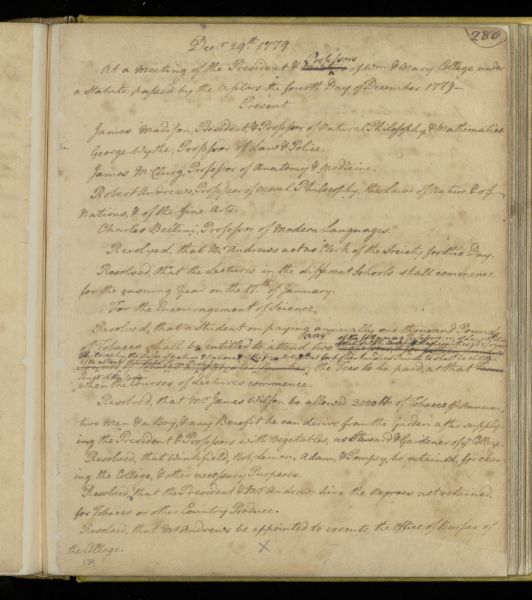 280
Decr. 29th 1779
At a Meeting of the President & Professors of Wm. & Mary College under
a Statute passed by the Visitors the fourth Day of December 1779—
Present
James Madison, President, & Professor of Natural Philosophy & Mathematics.
George Wythe, Professor of Law & Police.
James McClurg, Professor of Anatomy & Medicine.
Robert Andrews, Professor of Moral Philosophy, the Laws of Nature & of
Nations, & of the fine Arts.
Charles Bellini, Professor of Modern Languages.
Resolved, that Mr. Andrews act as Clerk of the Society for this Day.
Resolved, that the Lectures in the different Schools shall commence
for the ensuing Year on the 17th of January.
For the Encouragement of Science,
Resolved, that a Student on paying annually one thousand Pounds
of Tobacco shall be entitled to attend any two of the
the Fees to be paid at that
when the Courses of Lectures commence.
Resolved, that Mr. James Wilson be allowed 3000 lb. of Tobacco Annum,
two Men & a Boy, & any Benefit he can derive from the Garden after supply
ing the President & Professors with Vegetables, as Steward & Gardener of ye. College.
Resolved, that Winkfield, Bob, Lemon, Adam, & Pompey, be retained, for clean
ing the College, & other necessary Purposes.
Resolved, that the President & Mr. Andrews hire the Negroes not retained,
for Tobacco or other Country Produce.
Resolved, that Mr. Andrews be appointed to execute the Office of Bursar of
the College.
X
139